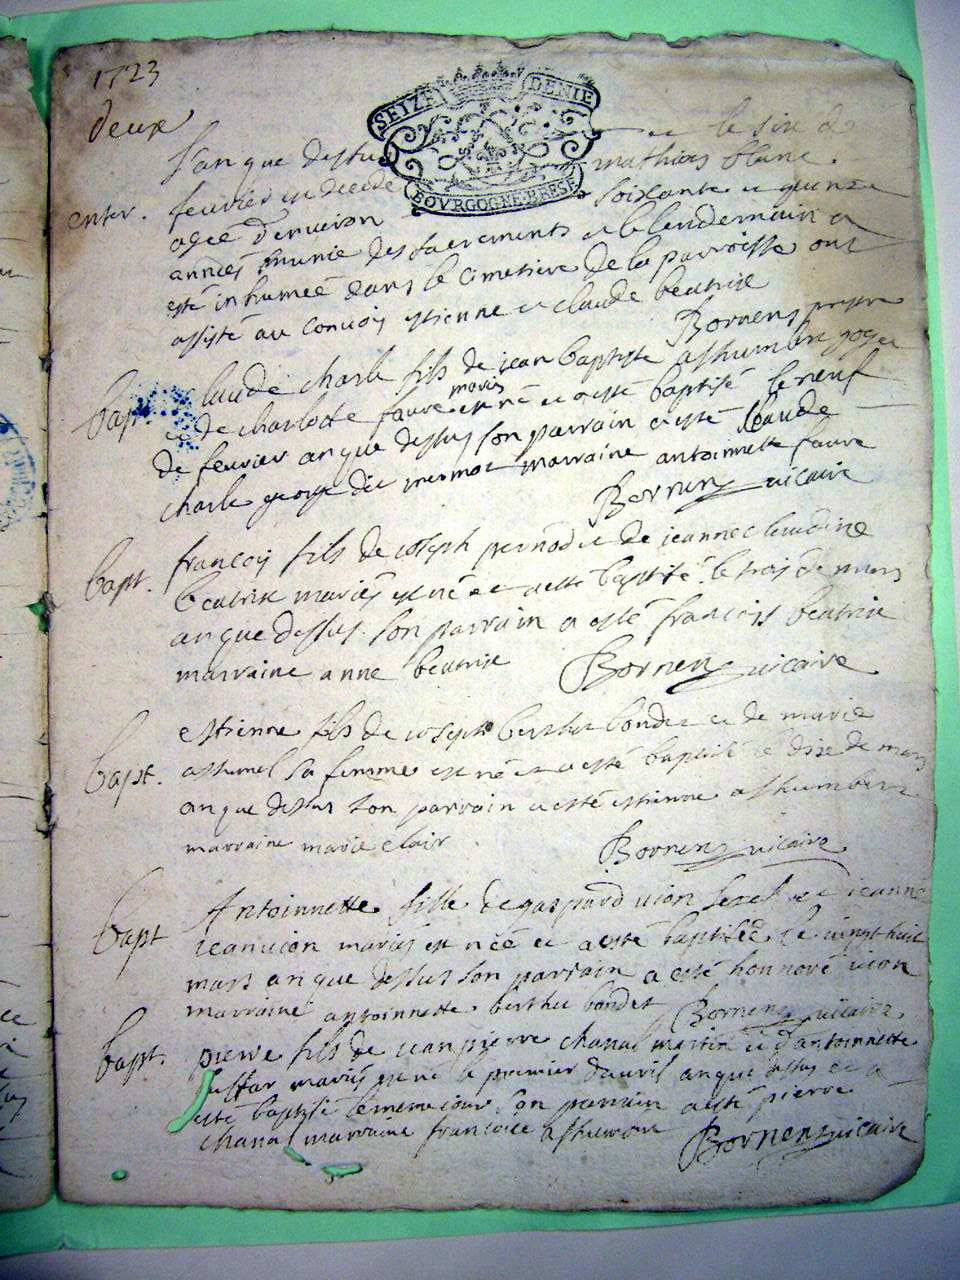 1723
deux
SEIZE DENIE
BOVRGOGNE BRESSE
l'an que dessus le six de
enter. feuvrier est decede mathias blanc
agee d'environ soixante et quinze
années munie des sacrements et le lendemain a
esté inhumeé dans le cimetiere de la parroisse ont
assisté au convoy estienne et claude beatrix
Bornens prestre
bapt. laude charle fils de jean baptiste
et de charlotte favre mariés est né et a esté baptisé le neuf
de fevrier an que dessus son parrain a esté Claude
charle george dit mermot marraine antoinnette favre
Bornens vicaire
bapt. francois fils de joseph pernod et de jeanne claudine
beatrix mariés est né et a esté baptisé le trois de mars
an que dessus son parrain a esté francois beatrix
marraine anne beatrix Bornens vicaire
estienne fils de joseph berthet bondet et de marie
bapt. sa femme est né et a esté baptisé le dixe de mars
an que dessus son parrain a esté estienne
marraine marie clair
Bornens vicaire
Antoinnette fille de gaspard vion et de jeanne
bapt jeanvion mariés est néé et a esté baptiséé le vingt huit
mars an que dessus son parrain a esté honnoré vion
marraine antoinnette berthet bondet Bornens vicaire
bapt. pierre fils de jean pierre chanal martin et d'antoinnette
mariés est né le premier d'avril an que dessus et a
esté baptisé le meme jour son parrain a esté pierre
chanal marraine francoise
Bornens vicaire